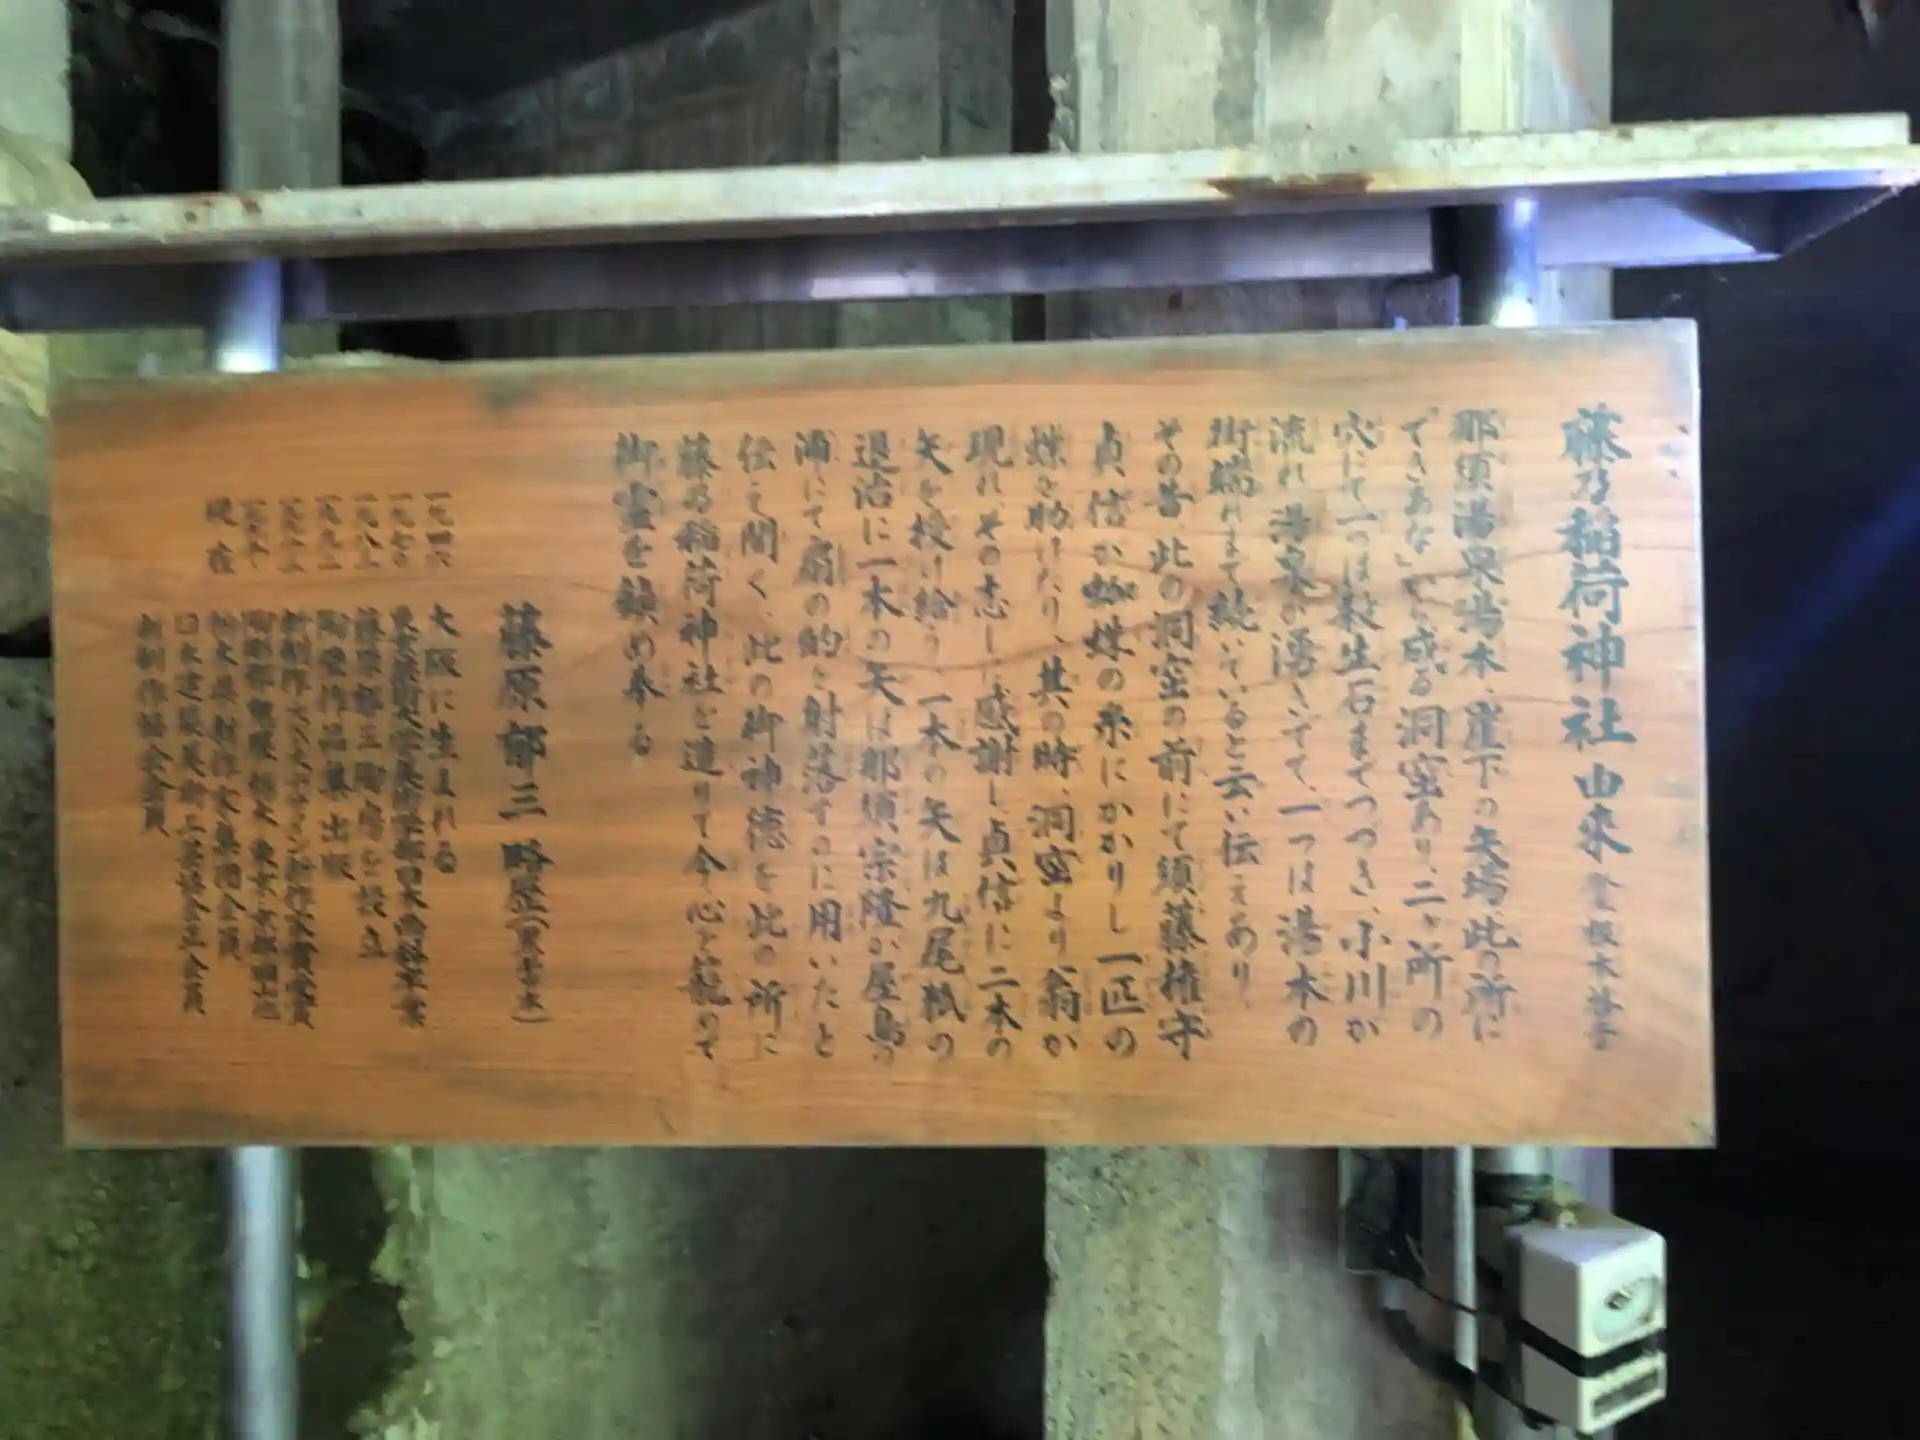 藤乃稲荷神社由来
那須湯泉湯本、崖下の矢場、此の所に
成る洞窟あり、二ヶ所の
穴にて一つは殺生石までつづき、小川が
流れ湯泉が湧きでて、一つは湯本の
街端れまで続いていると云い伝えあり、
その昔、此の洞窟の前にて須藤権守
貞信が蜘蛛の糸にかかりし一匹の
蝶を助けたり、其の時、洞窟より翁が
現れ、その志しに感謝し貞信に二本の
矢を授け給う 一本の矢は九尾狐の
退治に一本の矢は那須宗隆が屋島の
浦にて扇の的を射落すのに用いたと
伝え聞く、此の御神徳を此の所に
藤乃稲荷神社を造りて今、心を籠めて
御霊を鎮め奉る
藤原郁三 略歴
一九四六 大阪に生まれる
藤原郁三陶房を設立
陶壁作品集出版
現在 日本建築美術工芸協会会員
新制作協会会員